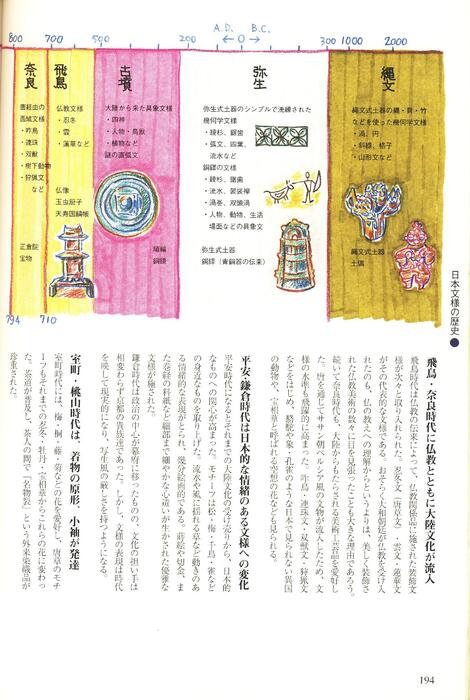 A.D. B.C.
800 700 500 200 ← 0 → 300 1000 2000
縄文
縄文式土器の縄・貝・竹
などを使った幾何学文様
・渦、円
・斜線、格子
・山形文など
縄文式土器
土偶
弥生
弥生式土器のシンプルで洗練された
幾何学文様
・綾杉、鋸歯
・弧文、四葉、
流水など
銅鐸の文様
・綾杉、鋸歯
・流水、袈裟襷
・渦巻、双頭渦
・人物、動物、生活
場面などの具象文
弥生式土器
銅鐸（青銅器の伝来）
古墳
大陸から来た具象文様
・四神
・人物・鳥獣
・植物など
謎の直弧文
埴輪
銅鏡
飛鳥
仏教文様
・忍冬
・雲
・蓮華など
仏像
玉虫厨子
天寿国繍帳
奈良
唐経由の
西域文様
・咋鳥
・連珠
・双獣
・樹下動物
・狩猟文
など
正倉院
宝物
794 710
日本文様の歴史●
飛鳥・奈良時代に仏教とともに大陸文化が流入
飛鳥時代は仏教の伝来によって、仏教関係品に施された装飾文
様が次々と取り入れられた。忍冬文（唐草文）・雲文・蓮華文
がその代表的な文様である。おそらく大和朝廷が仏教を受け入
れたのも、仏の教えへの理解からというよりは、美しく装飾さ
れた仏教美術の数々に目を見張ったことも大きな理由であろう。
続いて奈良時代も、大陸からもたらされる美術工芸品を愛好し
た。唐を通してササン朝ペルシャ風の文物が流入したため、文
様の水準も飛躍的に高まった。咋鳥・連珠文・双獣文・狩猟文
などをはじめ、駱駝や象・孔雀のような日本で見られない異国
の動物や、宝相華と呼ばれる空想の花なども見られる。
平安・鎌倉時代は日本的な情緒のある文様への変化
平安時代になるとそれまでの大陸文化の受け売りから、日本的
なものへの関心が高まった。モチーフは松・梅・千鳥・雀など
の身近なものを取り上げた。流水や風に揺れる草など動きのあ
る情緒的な表現がとられ、幾分絵画的である。蒔絵や切金、ま
た巻経の料紙など細部まで細やかな心遣いが生かされた優雅な
文様が施された。
鎌倉時代は政治の中心が幕府に移ったものの、文化の担い手は
相変わらず京都の貴族達であった。しかし、文様の表現は時代
を映して現実的になり、写生風の厳しさを持つようになる。
室町・桃山時代は、着物の原形、小袖が発達
室町時代には、梅・桐・藤・菊などの花を愛好し、唐草のモチ
ーフもそれまでの忍冬・牡丹・宝相華からこれらの花に変わっ
た。茶道が普及し、茶人の間で「名物裂」という外来染織品が
珍重された。
194